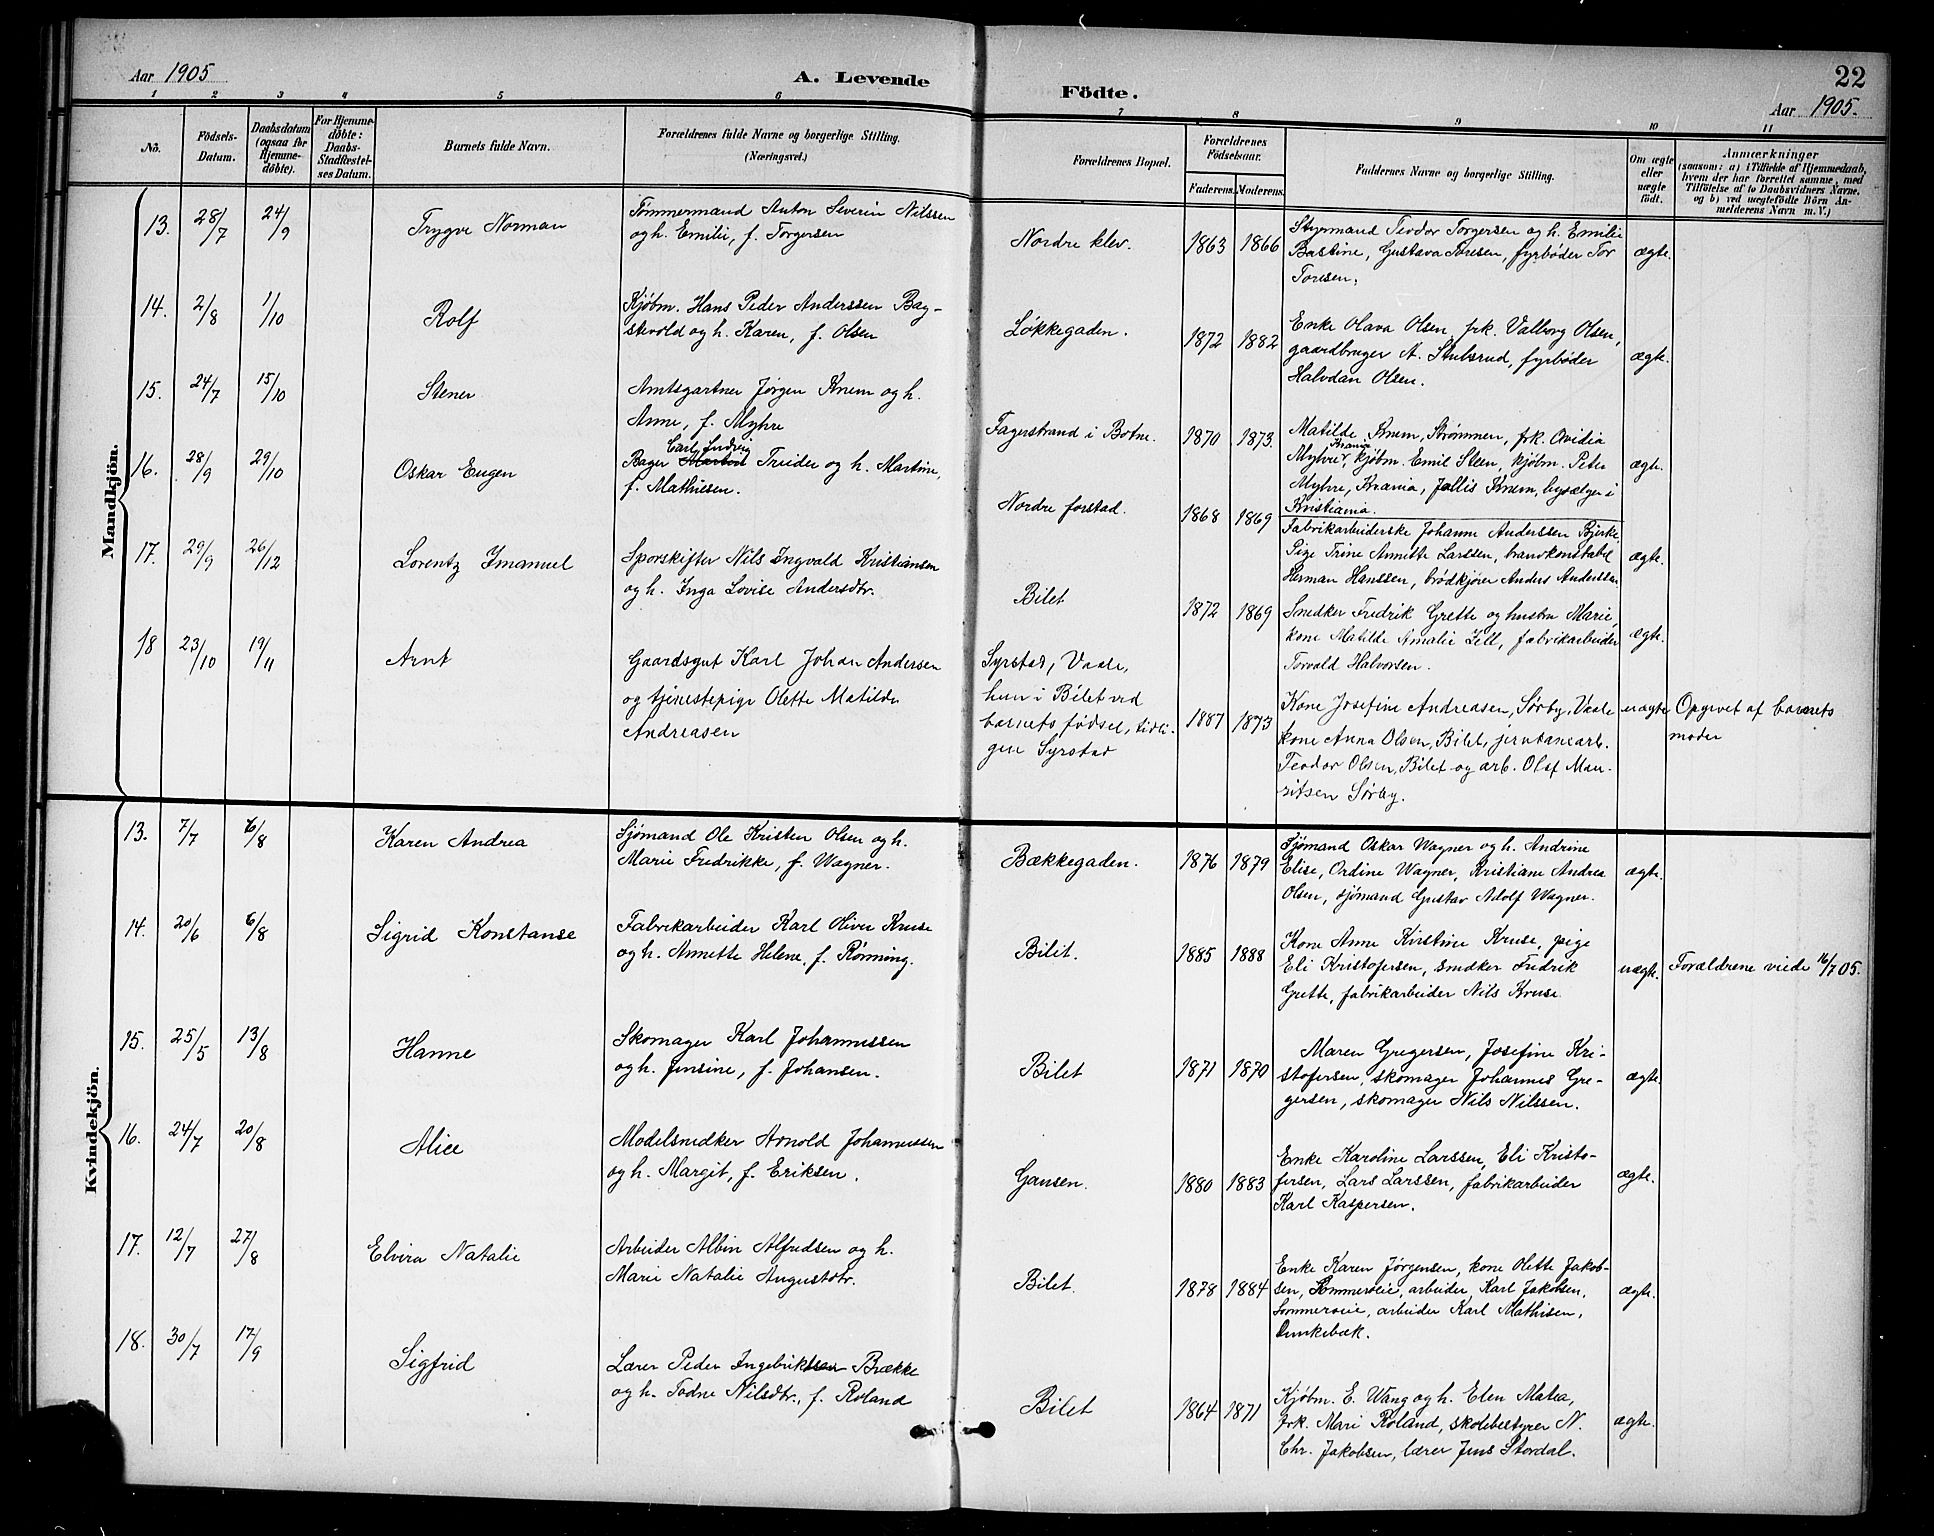 Aar 1905
A. Levende
Födte.
22
Aar 1905.
1 2 3 4 5 6 7 8 9 10 11
No.
Födsels-Datum.
Daabsdatum (ogsaa for Hjemme-döbte).
For Hjemme-döbte: Daabs-Stadfæstel-ses Datum.
Barnets fulde Navn.
Forældrenes fulde Navne og borgerlige Stilling.
(Næringsvei.)
Forældrenes Bopæl.
Forældrenes Födselsaar.
Faderens. Moderens.
Faddernes Navne og borgerlige Stilling.
Om ægte eller uægte født.
Anmærkninger
(saasom: a) i Tilfælde af Hjemmedaab,
hvem der har forrettet samme, med
Tilföielse af to Daabsvidners Navne,
og b) ved uægtefödte Börn An-
melderens Navn m. V.)
Mandkjön.
13. 28/7 24/9 Trygve Norman
Tømmermand Anton Severin Nilssen
og h. Emilie, f. Torgersen
Nordre klev. 1863 1866
Styrmand Teodor Torgersen og h. Emilie
Bastine, Gustava Toresen, fyrbøder Tor
Toresen.
ægte.
14. 2/8 1/10 Rolf
Kjøbm. Hans Peder Anderssen Bag-
skevold og h. Karen, f. Olsen
Løkkegaden. 1872 1882
Enke Olava Olsen, frk. Valborg Olsen,
gaardbruger A. Stubsrud, fyrbøder
Halvdan Olsen.
ægte.
15. 24/7 15/10 Stener
Amtsgartner Jørgen Knem og h.
Anne, f. Myhre
Fagerstrand i Botne. 1870 1873.
Matilde Knem, Strømmen, frk. Ovidia
Myhre, Krania, kjøbm. Emil Steen, kjøbm. Peter
Myhre, Krania, Jallis Knem, bysælger i
Kristiania.
ægte.
16. 28/9 29/10 Oskar Eugen
Carl Ludvig
Bager Martin Treider og h. Martine,
f. Mathiesen.
Nordre forstad. 1868 1869
Fabrikarbeiderske Johanne Anderssen Bjerke,
Pige Trine Annette Larssen, brandkonstabel
Herman Hanssen, brødkjører Anders Anderssen
ægte.
17. 29/9 26/12 Lorentz Imanuel
Sporskifter Nils Ingvald Kristiansen
og h. Inga Lovise Andersdtr.
Bilet 1872 1869
Snedker Fredrik Grette og hustru Marie,
kone Matilde Amalie Lell, fabrikarbeider
Torvald Halvorsen.
ægte.
18 23/10 19/11 Arnt
Gaardsgut Karl Johan Andersen
og tjenestepige Olette Matilde
Andreasen
Syrstad, Vaale,
hun i Bilet ved
barnets fødsel, tidli-
gere Syrstad
1887 1873
Kone Josefine Andreasen, Sørby, Vaale
kone Anna Olsen, Bilet, jernbanearb.
Teodor Olsen, Bilet og arb. Olaf Mau-
ritsen Sørby.
uægte
Opgivet af barnets
moder
Kvindekjön.
13. 7/7 6/8 Karen Andrea
Sjømand Ole Kristen Olsen og h.
Marie Fredrikke, f. Wagner.
Bækkegaden. 1876 1879
Sjømand Oskar Wagner og h. Andrine
Elise, Ordine Wagner, Kristiane Andrea
Olsen, sjømand Gustav Adolf Wagner.
ægte.
14. 20/6 6/8 Sigrid Konstanse
Fabrikarbeider Karl Oliver Kruse
og h. Annette Helene, f. Rønning.
Bilet. 1885 1888
Kone Anne Kirstine Kruse, pige
Eli Kristofersen, snedker Fredrik
Grette, fabrikarbeider Nils Kruse.
uægte.
Forældrene viede 16/7 05.
15. 25/5 13/8 Hanne
Skomager Karl Johannessen
og h. Jensine, f. Johansen.
Bilet 1871 1870
Maren Gregersen, Josefine Kri-
stofersen, skomager Johannes Gre-
gersen, skomager Nils Nilssen.
ægte.
16. 24/7 20/8 Alice
Modelsnedker Arnold Johannessen
og h. Margit, f. Eriksen.
Gansen. 1880 1883
Enke Karoline Larssen, Eli Kristo-
fersen, Lars Larssen, fabrikarbeider
Karl Kaspersen.
ægte.
17. 12/7 27/8 Elvira Natalie
Arbeider Albin Alfredsen og h.
Marie Natalie Augustdtr.
Bilet. 1878 1884
Enke Karen Jørgensen, kone Olette Jakob-
sen, Sommerøeie, arbeider Karl Jakobsen,
Sommerøeie, arbeider Karl Mathisen,
Dunkebæk.
ægte.
18. 30/7 17/9 Sigfrid
Lærer Peder Ingebriktsen Brække
og h. Todne Nilsdtr., f. Roland
Bilet 1864 1871
Kjøbm. E. Wang og h. Elen Matea,
frk. Mari Roland, skolebestyrer N.
Chr. Jakobsen, lærer Jens Stordal.
ægte.